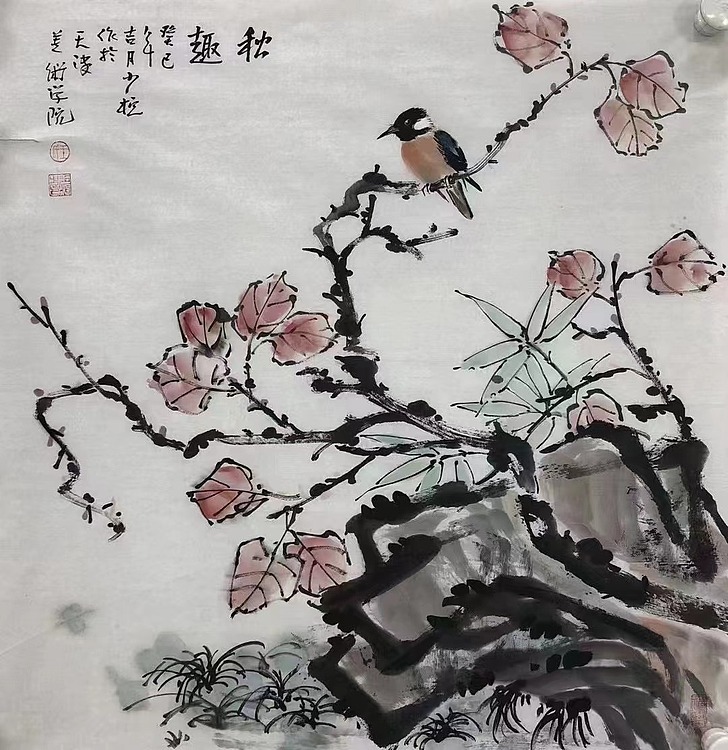 秋趣
癸巳
年
吉月少
作於
天津
美術学院